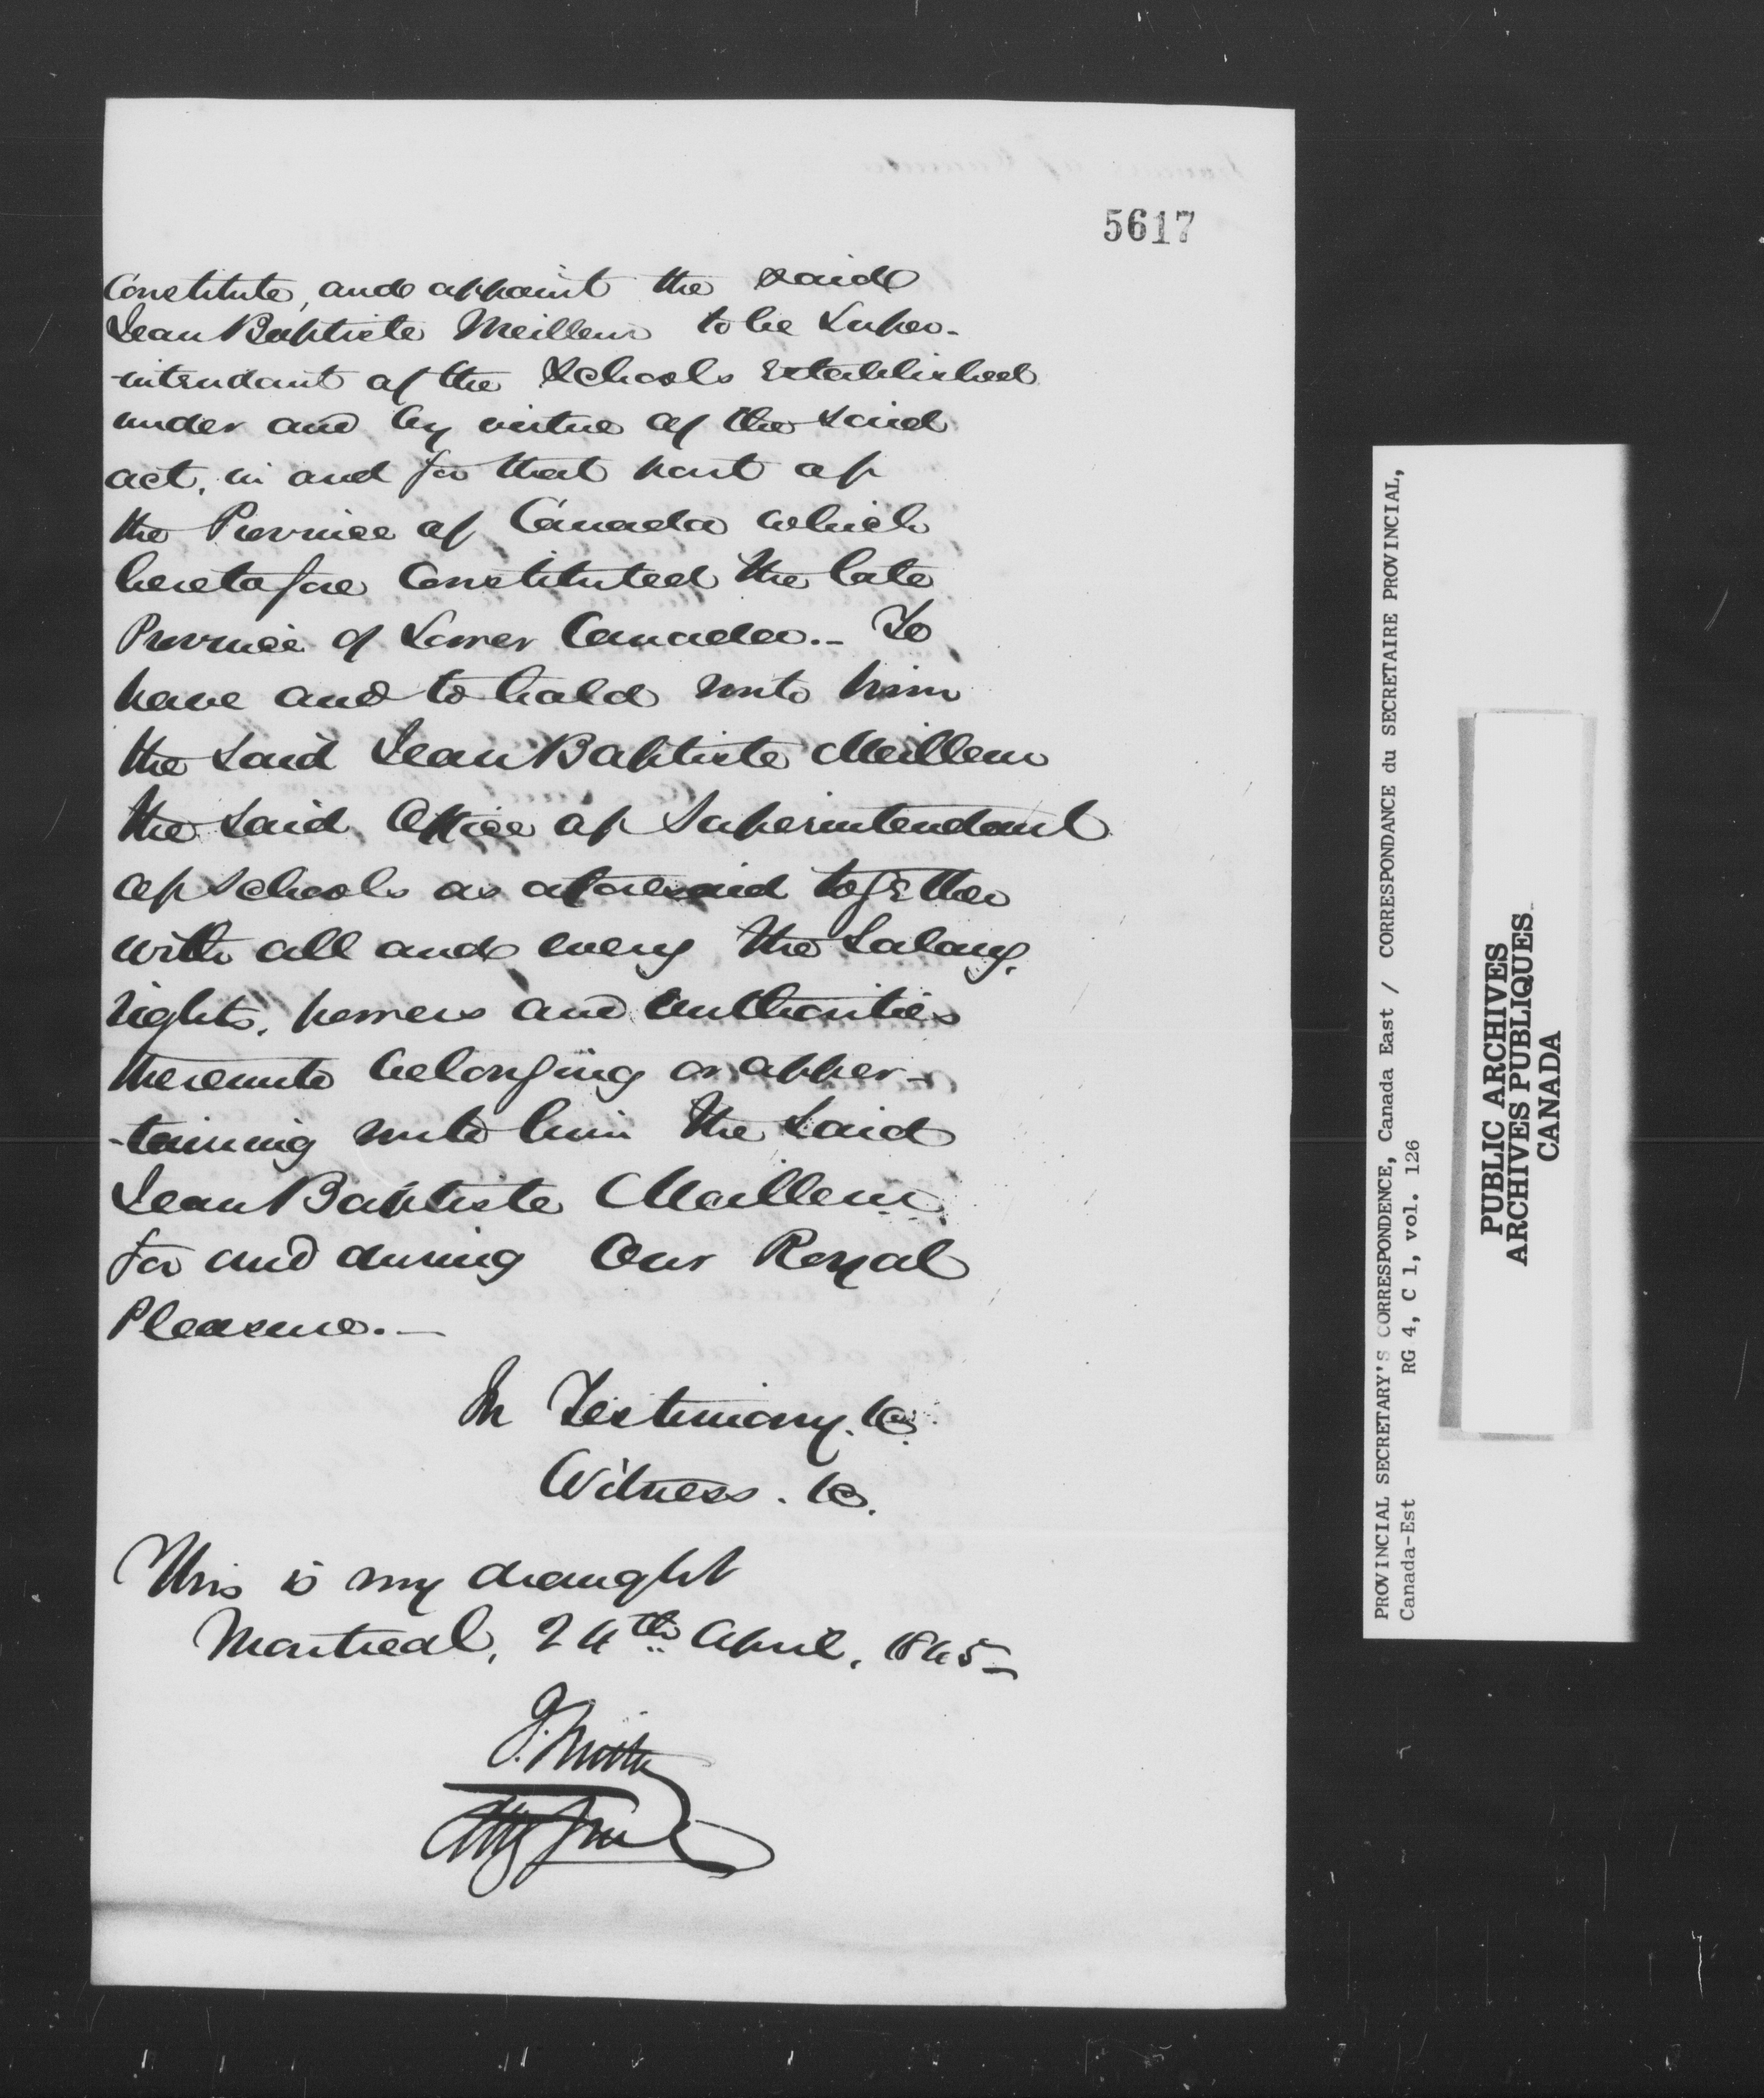 5617
Constitute, and appoint the said
Jean Baptiste Meilleur to be Super-
-intendant of the Schools established
under and by virtue of the said
act, in and for that part of
the Province of Canada which
heretofore Constituted the late
Province of Lower Canada.- To
have and to hold unto him
the said Jean Baptiste Meilleur
the said Office of Superintendant
of Schools as aforesaid together
with all and every the Salary,
rights, powers and authorities
thereunto belonging or apper-
-taining unto him the said
Jean Baptiste Meilleur
for and during Our Royal
Pleasure.-
In Testimony. &c.
Witness. &c.
This is my draught
Montreal, 24th April, 1845-
J. Smith
Atty Genl
PROVINCIAL SECRETARY'S CORRESPONDENCE, Canada East / CORRESPONDANCE du SECRETAIRE PROVINCIAL,
Canada-Est RG 4, C 1, vol. 126
PUBLIC ARCHIVES
ARCHIVES PUBLIQUES
CANADA